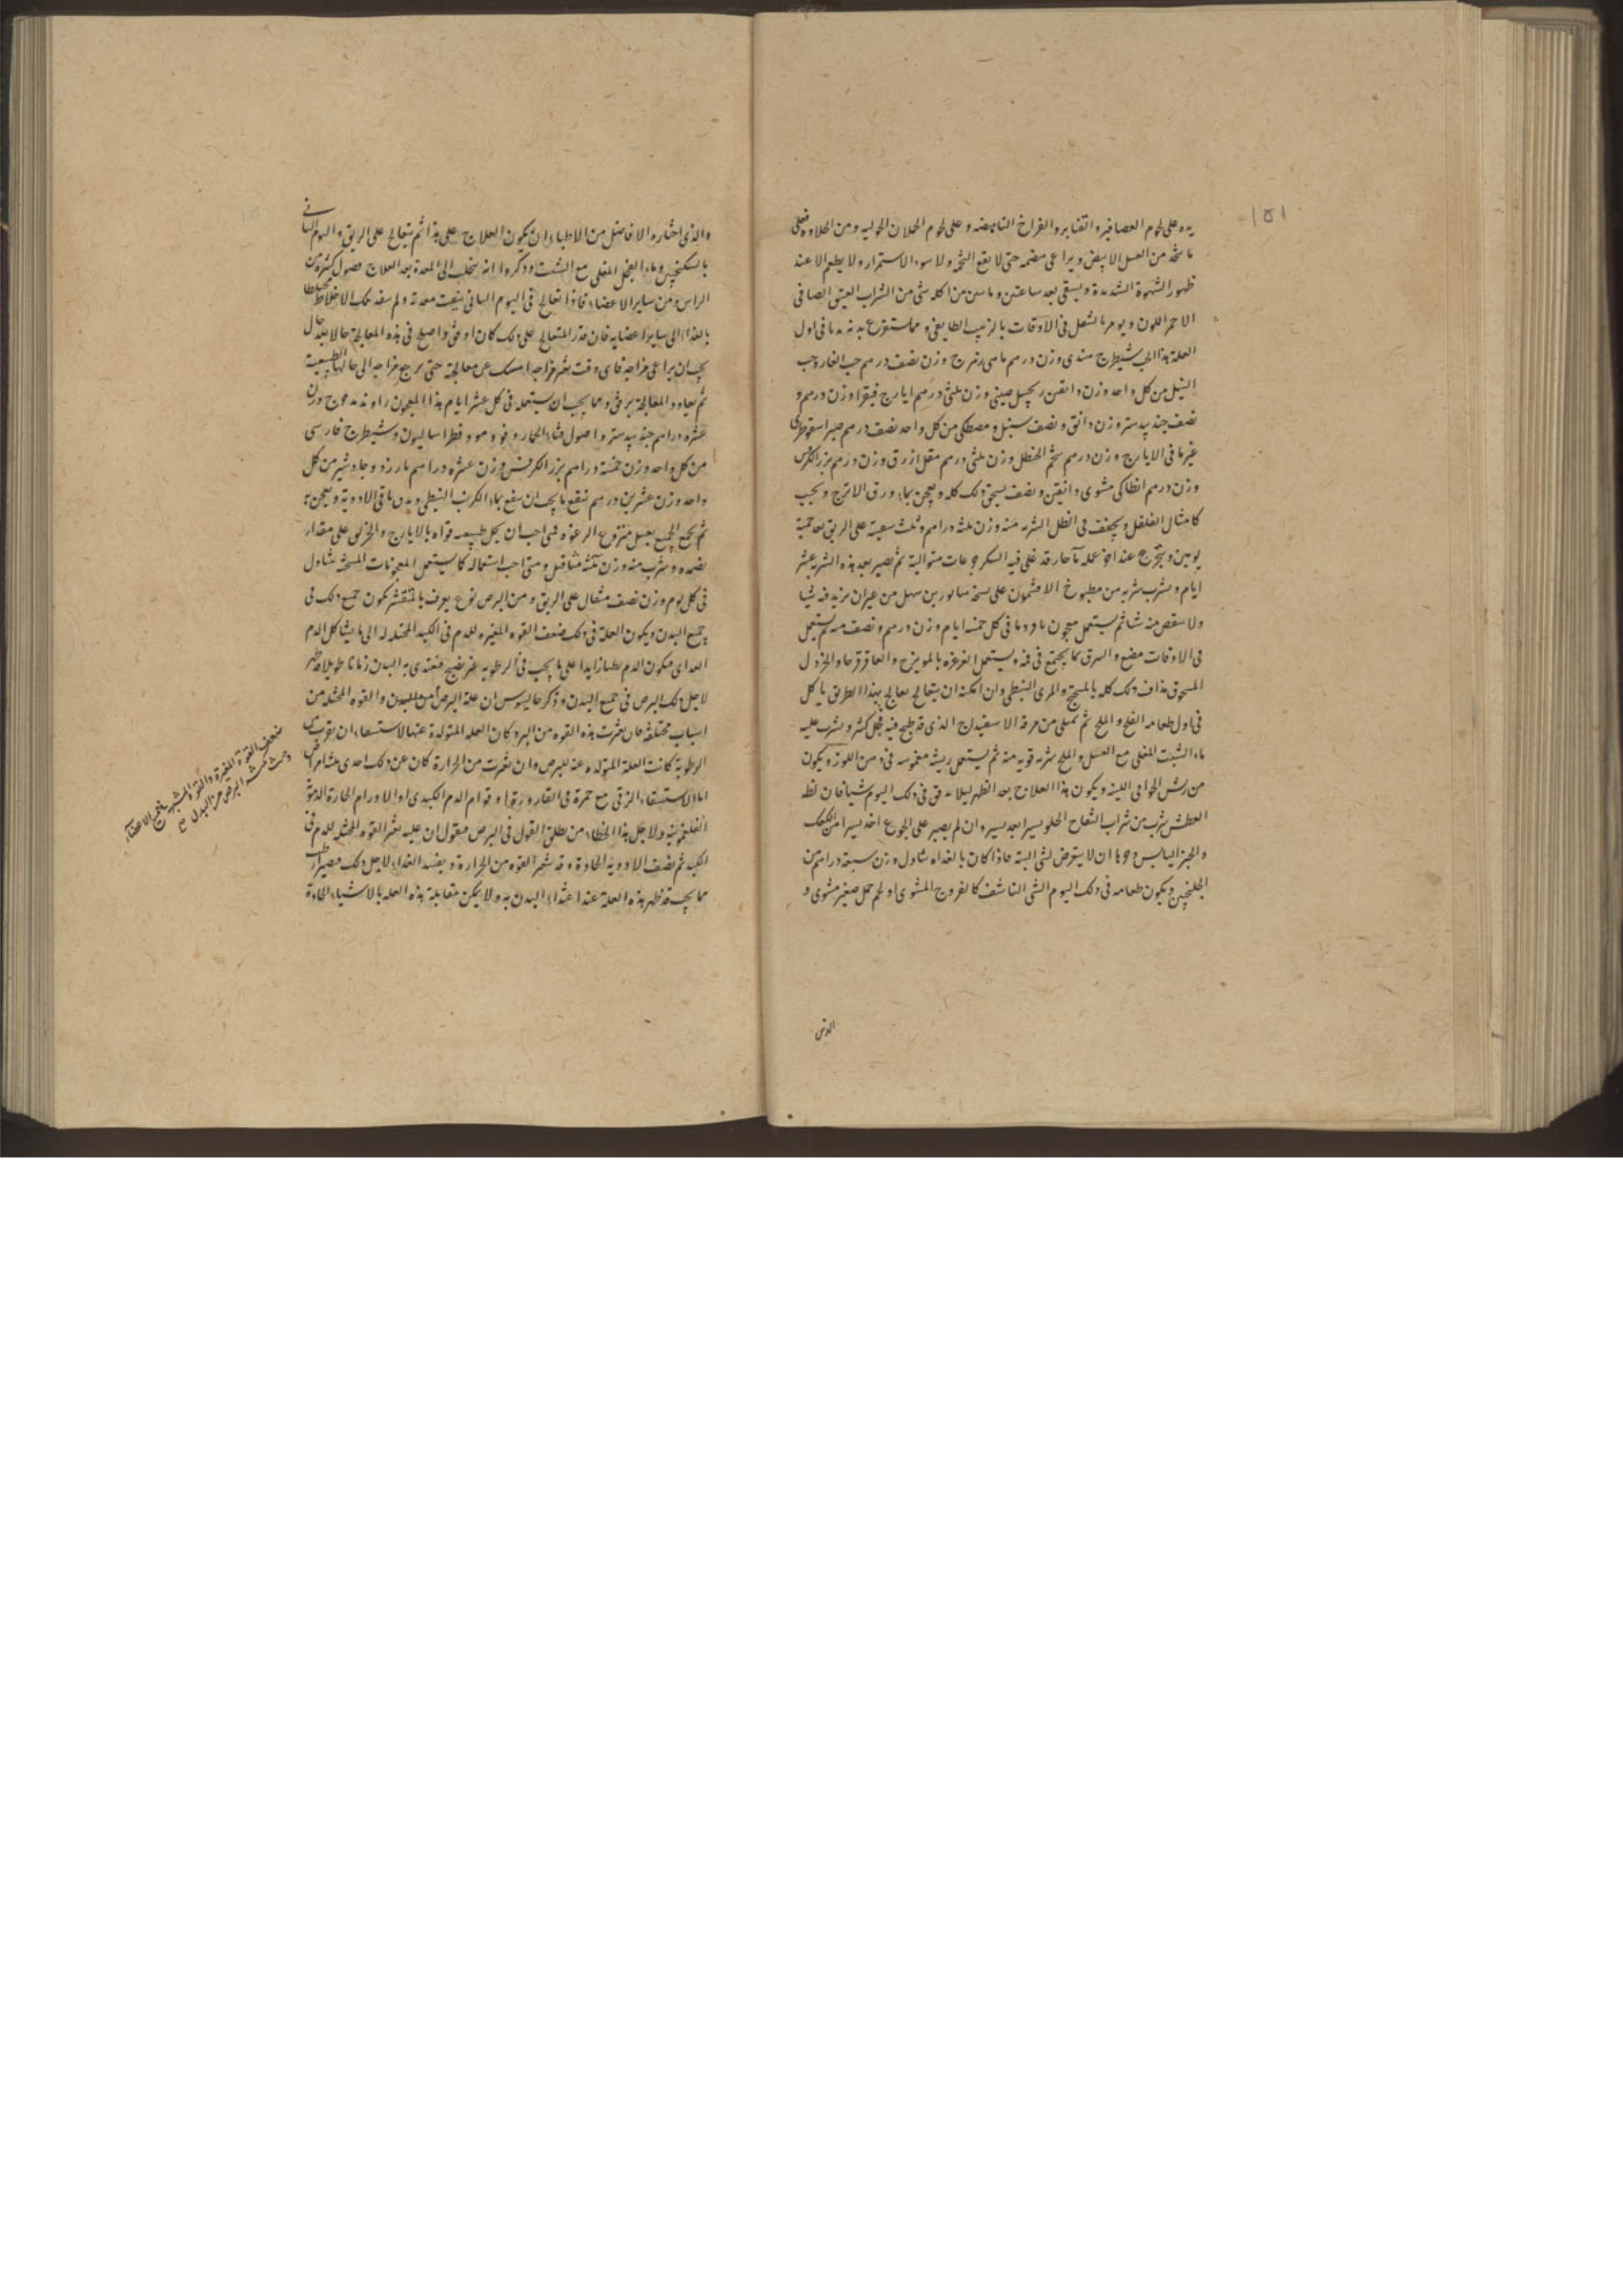 ١٥١
يده على لحوم العصافير والقنابر والفراخ الناهضه وعلى لحوم الحملان الحوليه ومن الحلاوه فعلى
ما يتخذ من العسل الابيض ويراعى هضمه حتى لا يقع التخمه ولا سوء الاستمراء ولا يطعم الا عند
ظهور الشهوة الشديدة ويسقى بعد ساعتين من اكله شئ من الشراب العتيق الصافى
الاحمر اللون ويومر بالتنقل فى الاوقات بالزبيب الطايفى ومما يستفرع به بدنه فى اول
العلة هذا الحب شيطرج هندى وزن درهم وزن نصف درهم حب الغار وحب
النيل من كل واحد وزن دانقين زنجبيل صينى وزن ثلثى درهم ايارج فيقرا وزن درهم و
نصف جندبيدستر وزن دانق ونصف سنبل ومصطكى من كل واحد نصف درهم صبر اسقوطرى
غير ما فى الايارج وزن درهم شحم الحنظل وزن ثلثى درهم مقل ازرق وزن درهم بزر الكرفس
وزن درهم انطاكى مشوى دانقين ونصف يسحق ذلك كله ويعجن بماء ورق الاترج ويحبب
كامثال الفلفل ويجفف فى الظل الشربه منه وزن ثلثه دراهم وثلث سبعية على الريق بعد حمية
يومين ويتجرع عند اخر عمله ماء حار قد غلى فيه السكر جرعات متوالية ثم يصبر بعد هذه الشربه عشر
ايام ويشرب شربه من مطبوخ الافتيمون على نسخة سابور بن سهل من غير ان يزيد فيه شيا
ولا ينقص منه شيا ثم يستعمل معجون فى كل خمسة ايام وزن درهم ونصف منه ثم يستعمل
فى الاوقات مضع والبزق لما يجتمع فى فمه ويستعمل الغرغره بالمويزج والعاقرقرحا والخردل
المسحوق مذاف ذلك كله بالمرى النبطى وان امكنه ان يتعالج يعالج بهذا الطريق ياكل
فى اول طعامه الفجل والملح ثم يملى من مرقة الاسفيدباج الذى قد طبخ فيه فجل كثير ويشرب عليه
ماء الشبت المغلى مع العسل والملح شربه قويه منه ثم يستعمل ريشه مغموسه فى دهن اللوز ويكون
من ريش الخوافى اللينه ويكون هذا العلاج بعد الظهر ليلا يذق فى ذلك اليوم شيا فان لظ
العطش شرب من شراب التفاح الحلو يسيرا بعد يسير وان لم يصبر على الجوع اخذ يسيرا من الكعك
والخبز اليابس وجب ان لا يتعرض لشى البتة فاذا كان بالغداه تناول وزن سبعة دراهم من
الجلنجبين ويكون طعامه فى ذلك اليوم الشى الناشف كالفروج المشوى او لحم حمل صغير مشوى و
والذى اختاره الافاضل من الاطباء ان يكون العلاج على هذا ثم يتعالج على الريق واليوم الثانى
بالسكنجبين وماء الفجل المغلى مع الشبت وذكروا انه يتحلب الى المعدة بعد العلاج فضول كثيرة من
الراس ومن ساير الاعضاء فاذا تعالج فى اليوم الثانى نقيت معدته ولم ينفذ تلك الاخلاط مختلطا
بالغذاء الى ساير اعضايه فان قدر المتعالج على ذلك كان اوفق واصلح فى هذه المعالجة
يجب ان يراعى مزاجه فاى وقت تغير مزاجه امسك عن معالجته حتى يرجع مزاجه الى حالتها الطبيعية
ثم يعاود المعالجة برفق ومما يجب ان يستعمله فى كل عشر ايام هذا المعجون راوند وج وزن
عشره دراهم جندبيدستر واصول قثاء الحمار وفو ومو وفطراساليون وشيطرج فارسى
من كل واحد وزن خمسة دراهم بزر الكرفس وزن عشره دراهم بارزد وجاوشير من كل
واحد وزن عشرين درهم ينقع ما يجب ان ينقع بماء الكرنب النبطى ويدق باقى الادوية ويعجن به
ثم يجمع الجميع بعسل منزوع الرغوة فمتى احب ان يحل طبيعته قواه بالايارج والخربق على مقدار
نضمده ويشرب منه وزن ثلثه مثاقيل ومتى احب استعماله كما يستعمل المعجونات المسخنة تناول
فى كل يوم وزن نصف مثقال على الريق ومن البرص نوع يعرف بالمتقشر يكون جميع ذلك فى
جميع البدن ويكون العلة فى ذلك ضعف القوه المغيره للدم فى الكبد المحيله له الى ما يشاكل الدم
الغذاى فيكون الدم بطبا زايدا على ما يجب فى الرطوبه غير نضيج فيغتذى به البدن زمانا طويلا فظهر
لاجل ذلك البرص فى جميع البدن وذكر جالينوس ان علة البرص والقوه المحيله من
اسباب مختلفة فان تغيرت هذه القوه من البرد كان العله المتولدة عنها الاستسقاء ان تغيرت من
الرطوبة كانت العلة المتولده عنه للبرص وان تغيرت من الحرارة كان عن ذلك احدى ثلث امراض
اما الاستسقاء الزقى مع حمرة فى القاروره او قوام الدم الكبدى او الاورام الحارة الدموية
الفلغمونيه ولاجل هذا الخطاء من يطلق القول فى البرص فيقول ان عليه تغير القوه المحيله للدم فى
الكبد ثم يصف الادويه الحادة وقد يتغير القوه من الحرارة ويفسد الغذاء لاجل ذلك فيصير ارطب
مما يجب فتظهر هذه العلة عند اغتذاء البدن به ولا يمكن مقابلة هذه العله بالاشياء الحادة
ضعف القوة المغيرة والقوة المشبهة فى جميع الاعضاء
البرص من البدن